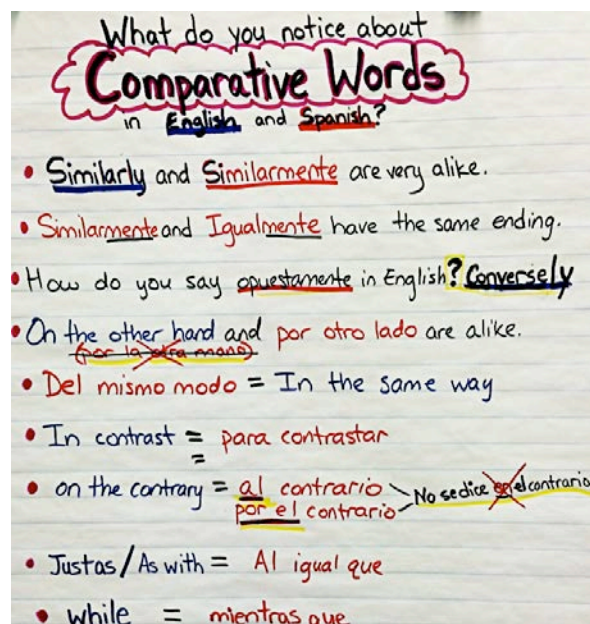 What do you notice about
Comparative Words
in English and Spanish?
• Similarly and Similarmente are very alike.
• Similarmente and Igualmente have the same ending.
• How do you say opuestamente in English? Conversely
• On the other hand and por otro lado are alike.
(por la otra mano)
• Del mismo modo = In the same way
• In contrast = para contrastar
=
• on the contrary = al contrario
por el contrario
No se dice en el contrario
• Just as / As with = Al igual que
• while = mientras que